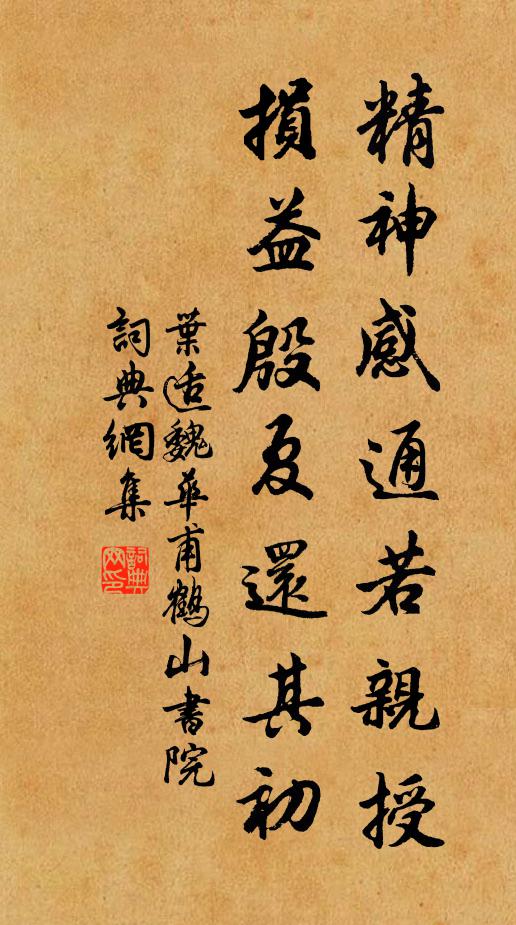 精神感通若親授
損益殷夏還其初
葉適魏華甫鶴山書院
詞典網集
詞典網印